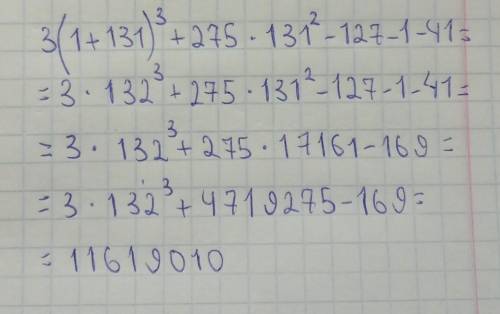 3(1+131)³+275·131²-127-1-41=
=3·132³+275·131²-127-1-41=
=3·132³+275·17161-169=
=3·132³+4719275-169=
=11619010